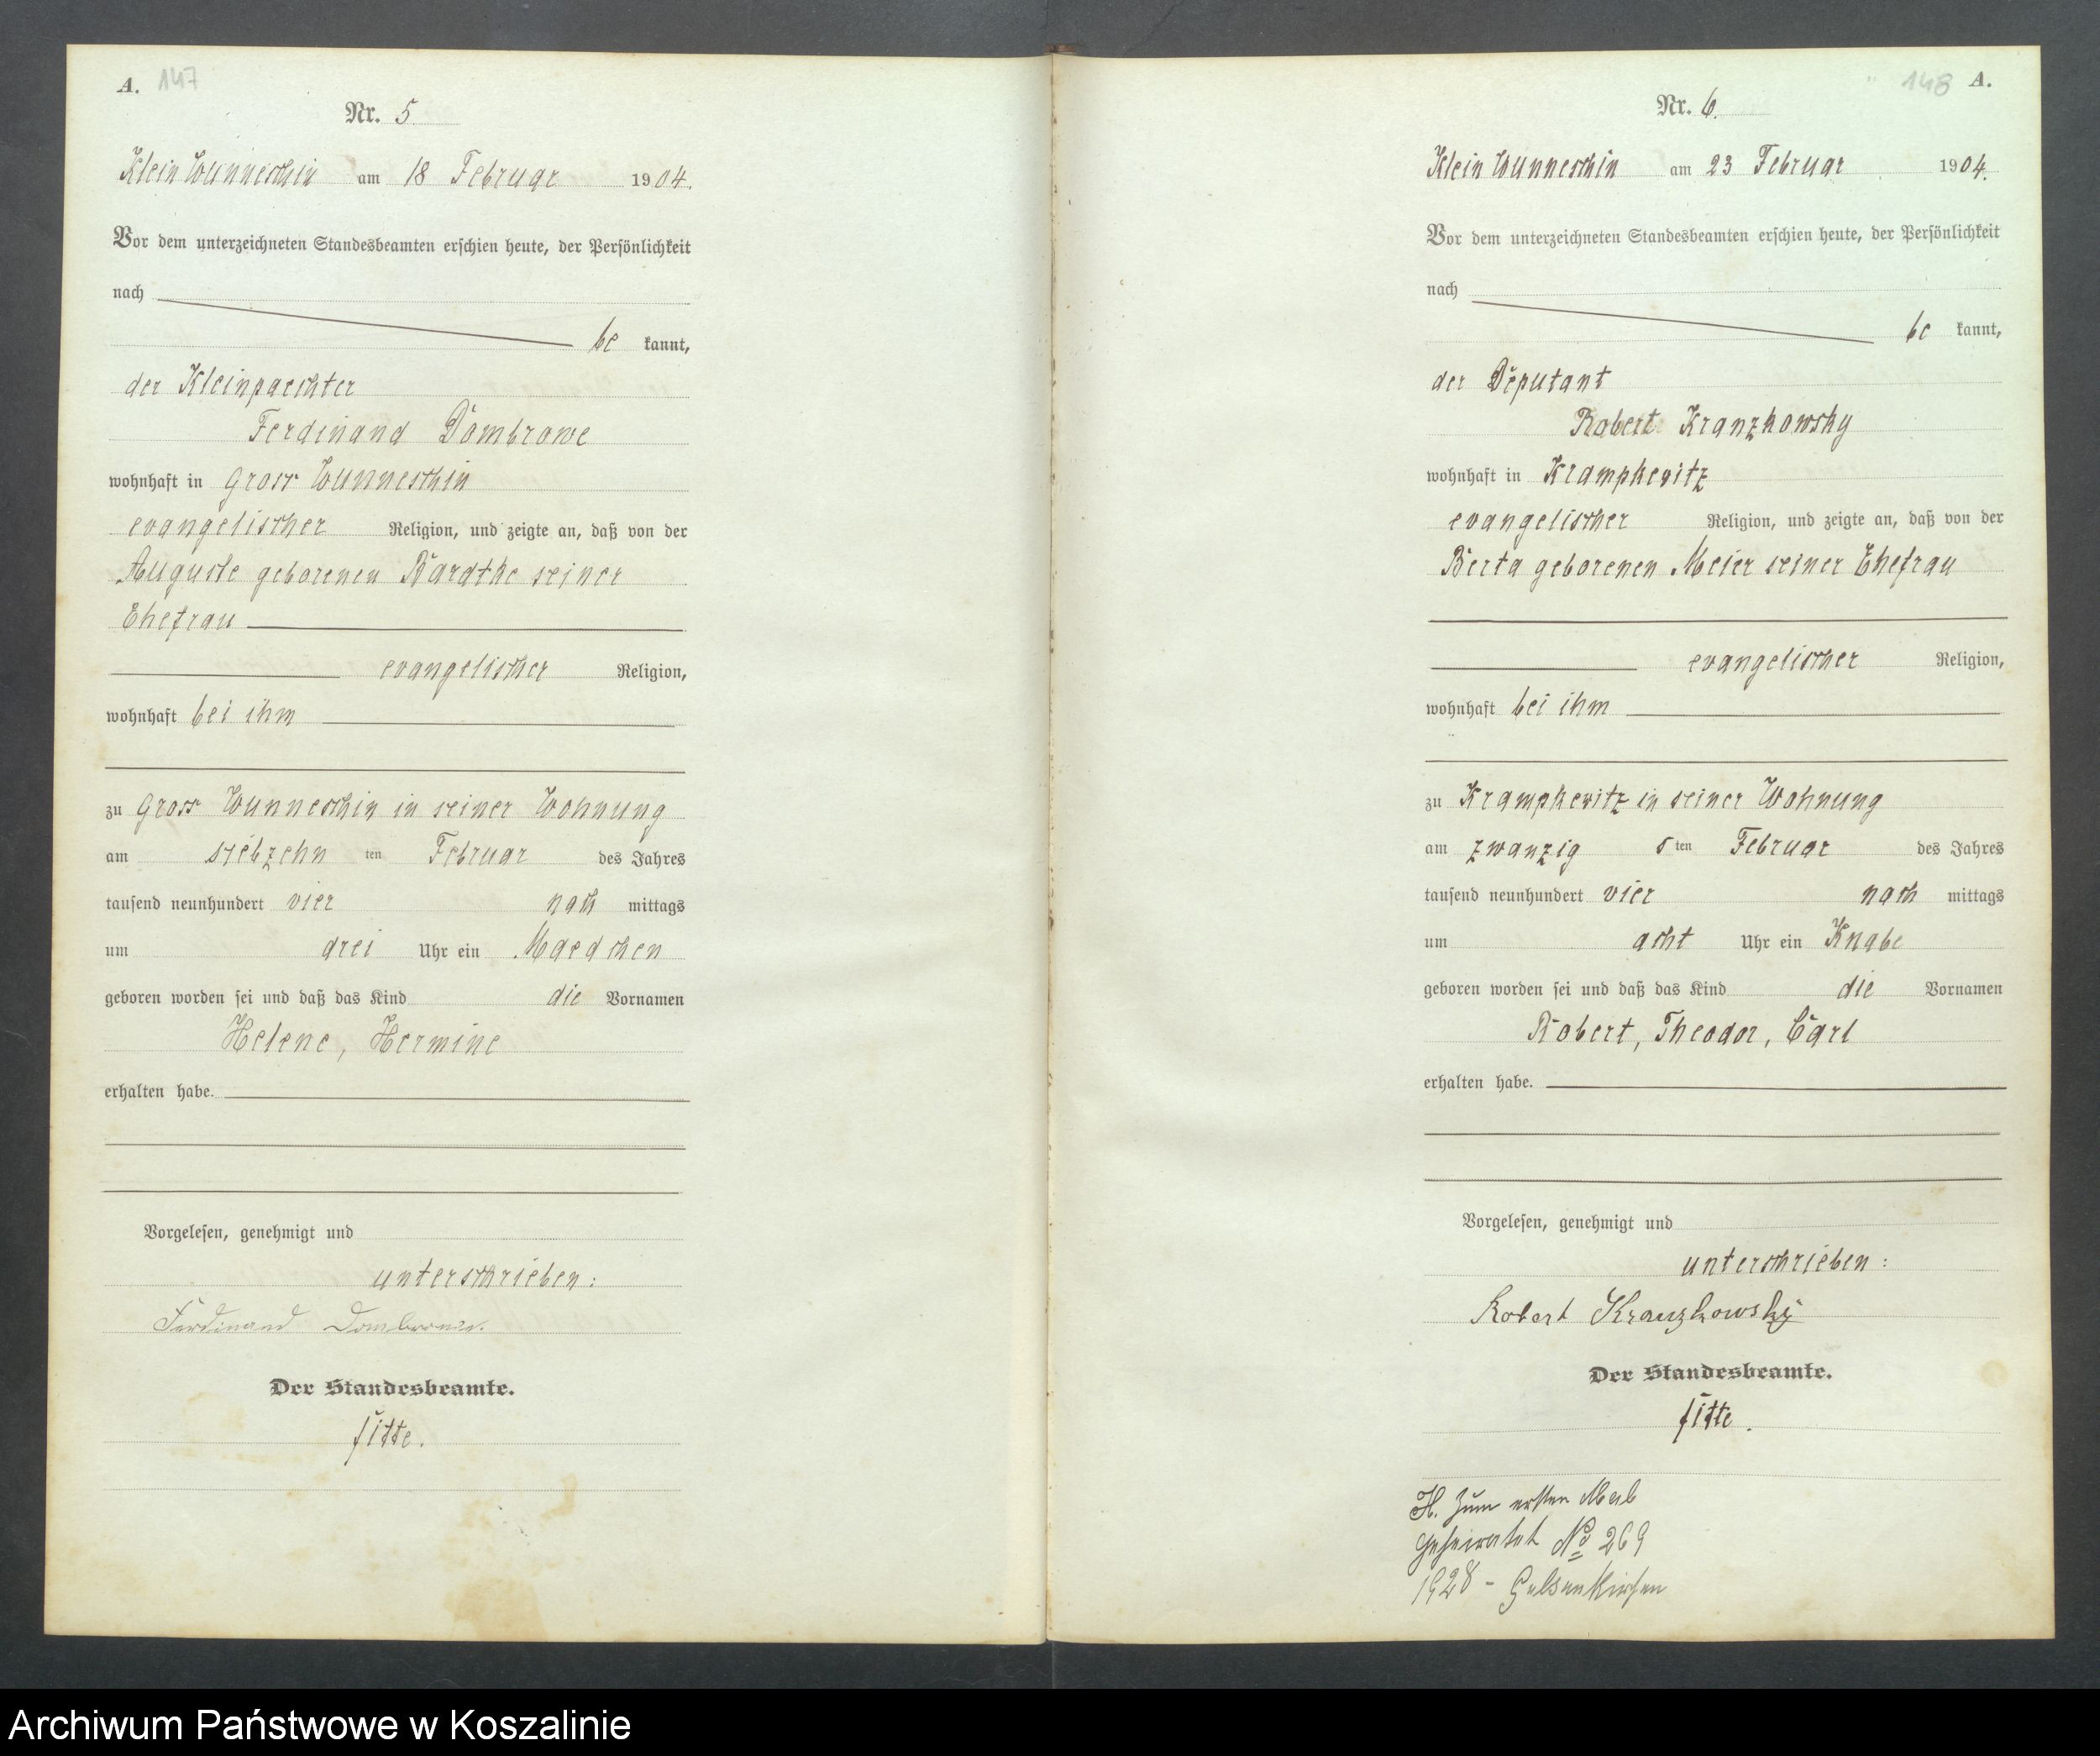 A. 147
Nr. 5
Klein Wunneschin am 18 Februar 1904.
Vor dem unterzeichneten Standesbeamten erschien heute, der Persönlichkeit
nach
be kannt,
der Kleinpaechter
Ferdinand Dombrowe
wohnhaft in Gross Wunneschin
evangelischer Religion, und zeigte an, daß von der
Auguste geborenen Barathe seiner
Ehefrau
evangelischer Religion,
wohnhaft bei ihm
zu Gross Wunneschin in seiner Wohnung
am siebzehn ten Februar des Jahres
tausend neunhundert vier nach mittags
um drei Uhr ein Maedchen
geboren worden sei und daß das Kind die Vornamen
Helene, Hermine
erhalten habe.
Vorgelesen, genehmigt und
unterschrieben:
Ferdinand Dombrowe.
Der Standesbeamte.
Fitte.
148 A.
Nr. 6.
Klein Wunneschin am 23 Februar 1904.
Vor dem unterzeichneten Standesbeamten erschien heute, der Persönlichkeit
nach
be kannt,
der Deputant
Robert Kranzkowsky
wohnhaft in Krampkewitz
evangelischer Religion, und zeigte an, daß von der
Berta geborenen Meier seiner Ehefrau
evangelischer Religion,
wohnhaft bei ihm
zu Krampkewitz in seiner Wohnung
am zwanzig sten Februar des Jahres
tausend neunhundert vier nach mittags
um acht Uhr ein Knabe
geboren worden sei und daß das Kind die Vornamen
Robert, Theodor, Carl
erhalten habe.
Vorgelesen, genehmigt und
unterschrieben:
Robert Kranzkowsky
Der Standesbeamte.
Fitte.
H. Zum ersten Mal
geheiratet No 269
1928 - Gelsenkirchen
Archiwum Państwowe w Koszalinie